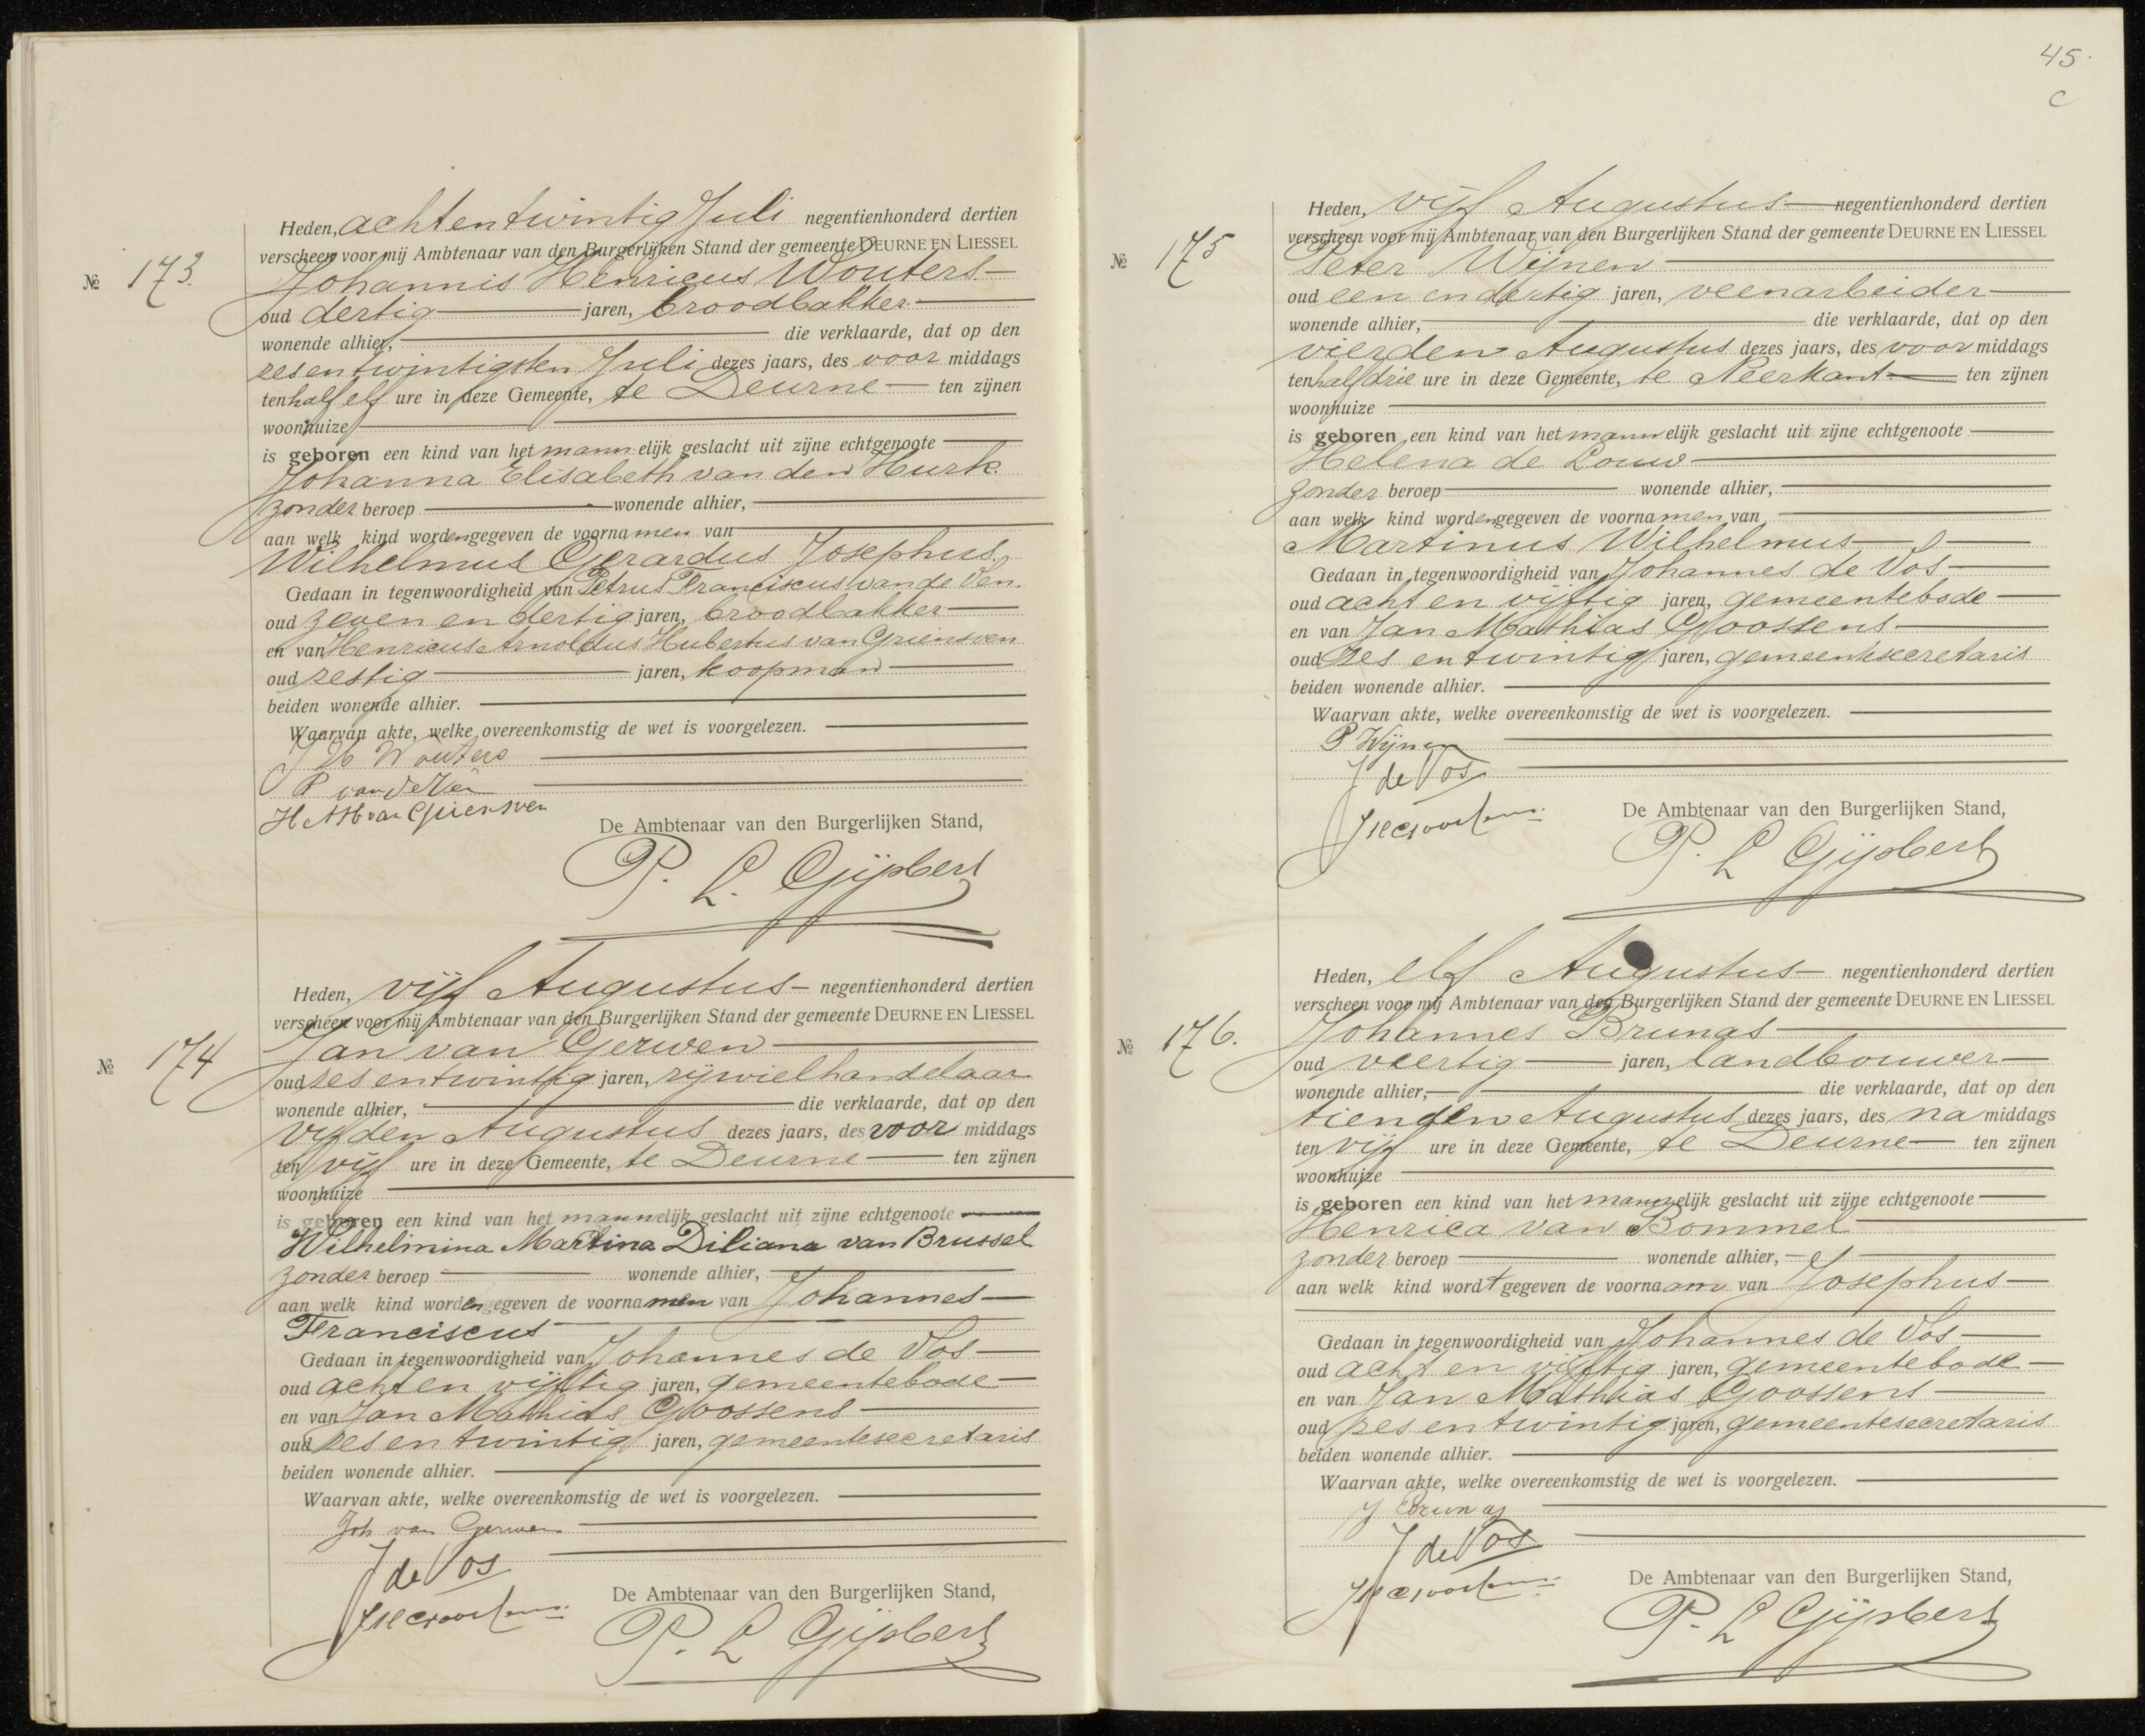 Nº 173.
Heden, achtentwintig Juli negentienhonderd dertien
verscheen voor mij Ambtenaar van den Burgerlijken Stand der gemeente DEURNE EN LIESSEL
Johannis Henricus Wouters
oud dertig jaren, broodbakker
wonende alhier, die verklaarde, dat op den
zesentwintigsten Juli dezes jaars, des voor middags
ten half elf ure in deze Gemeente, te Deurne ten zijnen
woonhuize
is geboren een kind van het mannelijk geslacht uit zijne echtgenoote
Johanna Elisabeth van den Hurk
zonder beroep wonende alhier,
aan welk kind worden gegeven de voornamen van
Wilhelmus Gerardus Josephus.
Gedaan in tegenwoordigheid van Petrus Franciscus van de Ven.
oud zeven en dertig jaren, broodbakker
en van Henricus Arnoldus Hubertus van Griensven
oud zestig jaren, koopman
beiden wonende alhier.
Waarvan akte, welke overeenkomstig de wet is voorgelezen.
J H Wouters
P van de Ven
H A H van Griensven
De Ambtenaar van den Burgerlijken Stand,
P. L. Gijsbers
Nº 174
Heden, vijf Augustus negentienhonderd dertien
verscheen voor mij Ambtenaar van den Burgerlijken Stand der gemeente DEURNE EN LIESSEL
Jan van Gerwen
oud zes en twintig jaren, rijwielhandelaar
wonende alhier, die verklaarde, dat op den
vijfden Augustus dezes jaars, des voor middags
ten vijf ure in deze Gemeente, te Deurne ten zijnen
woonhuize
is geboren een kind van het mannelijk geslacht uit zijne echtgenoote
Wilhelmina Martina Diliana van Brussel
zonder beroep wonende alhier,
aan welk kind worden gegeven de voornamen van Johannes
Franciscus
Gedaan in tegenwoordigheid van Johannes de Vos
oud acht en vijftig jaren, gemeentebode
en van Jan Mathias Goossens
oud zes en twintig jaren, gemeentesecretaris
beiden wonende alhier.
Waarvan akte, welke overeenkomstig de wet is voorgelezen.
Joh van Gerwen
J de Vos
De Ambtenaar van den Burgerlijken Stand,
P. L Gijsbers
45.
c
Nº 175
Heden, vijf Augustus negentienhonderd dertien
verscheen voor mij Ambtenaar van den Burgerlijken Stand der gemeente DEURNE EN LIESSEL
Peter Wijnen
oud een en dertig jaren, veenarbeider
wonende alhier, die verklaarde, dat op den
vierden Augustus dezes jaars, des voor middags
ten half drie ure in deze Gemeente, te Neerkant ten zijnen
woonhuize
is geboren een kind van het mannelijk geslacht uit zijne echtgenoote
Helena de Louw
zonder beroep wonende alhier,
aan welk kind worden gegeven de voornamen van
Martinus Wilhelmus
Gedaan in tegenwoordigheid van Johannes de Vos
oud acht en vijftig jaren, gemeentebode
en van Jan Mathias Goossens
oud zes en twintig jaren, gemeentesecretaris
beiden wonende alhier.
Waarvan akte, welke overeenkomstig de wet is voorgelezen.
P Wijnen
J de Vos
De Ambtenaar van den Burgerlijken Stand,
P. L Gijsbers
Nº 176.
Heden, elf Augustus negentienhonderd dertien
verscheen voor mij Ambtenaar van den Burgerlijken Stand der gemeente DEURNE EN LIESSEL
Johannes Brunas
oud veertig jaren, landbouwer
wonende alhier, die verklaarde, dat op den
tienden Augustus dezes jaars, des na middags
ten vijf ure in deze Gemeente, te Deurne ten zijnen
woonhuize
is geboren een kind van het mannelijk geslacht uit zijne echtgenoote
Henrica van Bommel
zonder beroep wonende alhier,
aan welk kind wordt gegeven de voornaam van Josephus
Gedaan in tegenwoordigheid van Johannes de Vos
oud acht en vijftig jaren, gemeentebode
en van Jan Mathias Goossens
oud zes en twintig jaren, gemeentesecretaris
beiden wonende alhier.
Waarvan akte, welke overeenkomstig de wet is voorgelezen.
J Brunas
J de Vos
De Ambtenaar van den Burgerlijken Stand,
P. L Gijsbers